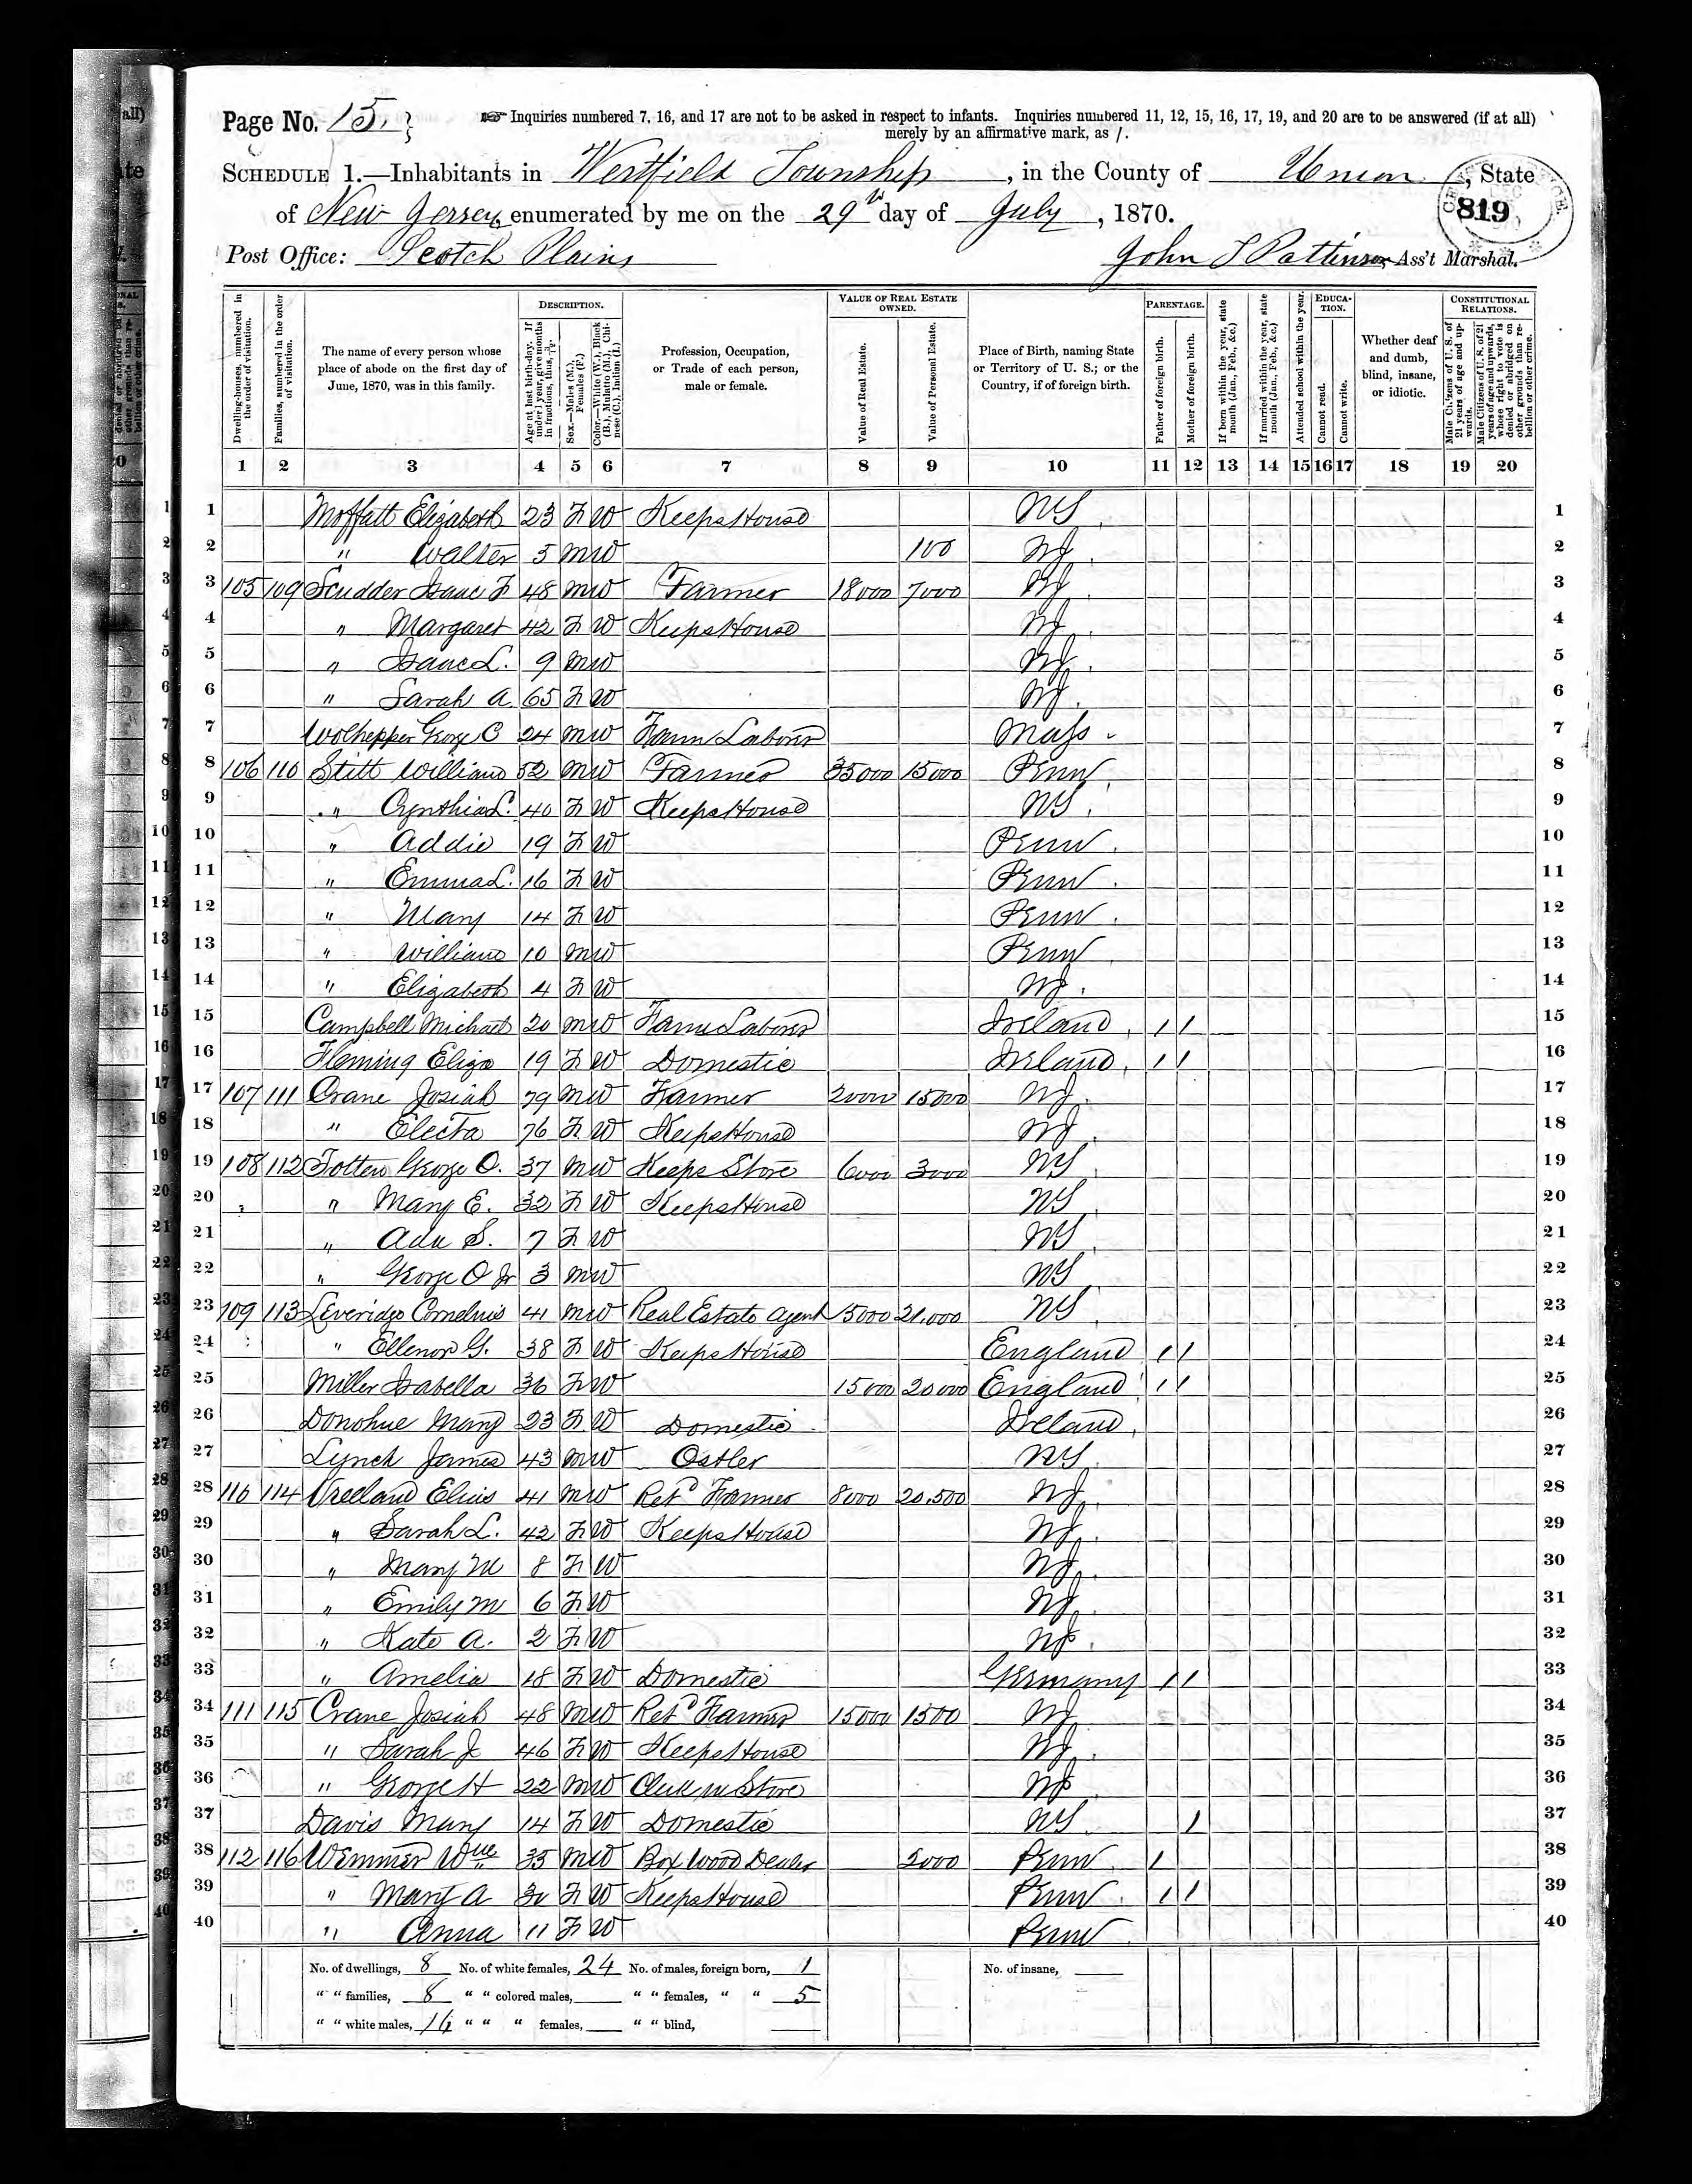 Page No. 15.
Inquiries numbered 7, 16, and 17 are not to be asked in respect to infants. Inquiries numbered 11, 12, 15, 16, 17, 19, and 20 are to be answered (if at all)
merely by an affirmative mark, as /.
SCHEDULE 1.—Inhabitants in Westfield Township, in the County of Union, State
of New Jersey, enumerated by me on the 29th day of July, 1870.
819
Post Office: Scotch Plains
John T Pattinson, Ass't Marshal.
DESCRIPTION. VALUE OF REAL ESTATE OWNED. PARENTAGE. EDUCATION. CONSTITUTIONAL RELATIONS.
Dwelling-houses, numbered in the order of visitation.
Families, numbered in the order of visitation.
The name of every person whose place of abode on the first day of June, 1870, was in this family.
Age at last birth-day. If under 1 year, give months in fractions, thus, 3/12.
Sex.—Males (M.), Females (F.)
Color.—White (W.), Black (B.), Mulatto (M.), Chinese (C.), Indian (I.)
Profession, Occupation, or Trade of each person, male or female.
Value of Real Estate.
Value of Personal Estate.
Place of Birth, naming State or Territory of U. S.; or the Country, if of foreign birth.
Father of foreign birth.
Mother of foreign birth.
If born within the year, state month (Jan., Feb., &c.)
If married within the year, state month (Jan., Feb., &c.)
Attended school within the year.
Cannot read.
Cannot write.
Whether deaf and dumb, blind, insane, or idiotic.
Male Citizens of U. S. of 21 years of age and upwards.
Male Citizens of U. S. of 21 years of age and upwards, whose right to vote is denied or abridged on other grounds than rebellion or other crime.
1 2 3 4 5 6 7 8 9 10 11 12 13 14 15 16 17 18 19 20
1 Moffatt Elizabeth 23 F W Keeps House NY 1
2 " Walter 5 M W 100 NJ 2
3 105 109 Scudder Isaac F 48 M W Farmer 18000 7000 NJ 3
4 " Margaret 42 F W Keeps House NJ 4
5 " Isaac L. 9 M W NJ 5
6 " Sarah A. 65 F W NJ 6
7 George C 24 M W Farm Laborer Mass 7
8 106 110 Stitt William 52 M W Farmer 35000 15000 Penn 8
9 " Cynthia L. 40 F W Keeps House NY 9
10 " Addie 19 F W Penn 10
11 " Emma L. 16 F W Penn 11
12 " Mary 14 F W Penn 12
13 " William 10 M W Penn 13
14 " Elizabeth 4 F W NJ 14
15 Campbell Michael 20 M W Farm Laborer Ireland / / 15
16 Fleming Eliza 19 F W Domestic Ireland / / 16
17 107 111 Crane Josiah 79 M W Farmer 20000 15000 NJ 17
18 " Electa 76 F W Keeps House NJ 18
19 108 112 Totten George O. 37 M W Keeps Store 6000 3000 NY 19
20 " Mary E. 32 F W Keeps House NY 20
21 " Ada S. 7 F W NY 21
22 " George O Jr 3 M W NY 22
23 109 113 Leveridge Cornelius 41 M W Real Estate Agent 15000 21,000 NY 23
24 " Ellenor G. 38 F W Keeps House England / / 24
25 Miller Isabella 36 F W 15000 20000 England / / 25
26 Donohue Mary 23 F W Domestic Ireland 26
27 Lynch James 43 M W Ostler NY 27
28 110 114 Vreeland Elias 41 M W Retd Farmer 8000 20,500 NJ 28
29 " Sarah L. 42 F W Keeps House NJ 29
30 " Mary M 8 F W NJ 30
31 " Emily M 6 F W NJ 31
32 " Kate A. 2 F W NJ 32
33 " Amelia 18 F W Domestic Germany / / 33
34 111 115 Crane Josiah 48 M W Retd Farmer 15000 1500 NJ 34
35 " Sarah J 46 F W Keeps House NJ 35
36 " George H 22 M W Clerk in Store NJ 36
37 Davis Mary 14 F W Domestic NY / 37
38 112 116 Wemmer Wm 35 M W Box Wood Dealer 2000 Penn / 38
39 " Mary A 30 F W Keeps House Penn / / 39
40 " Anna 11 F W Penn 40
No. of dwellings, 8 No. of white females, 24 No. of males, foreign born, 1 No. of insane,
" " families, 8 " " colored males, " " females, " " 5
" " white males, 16 " " " females, " " blind,